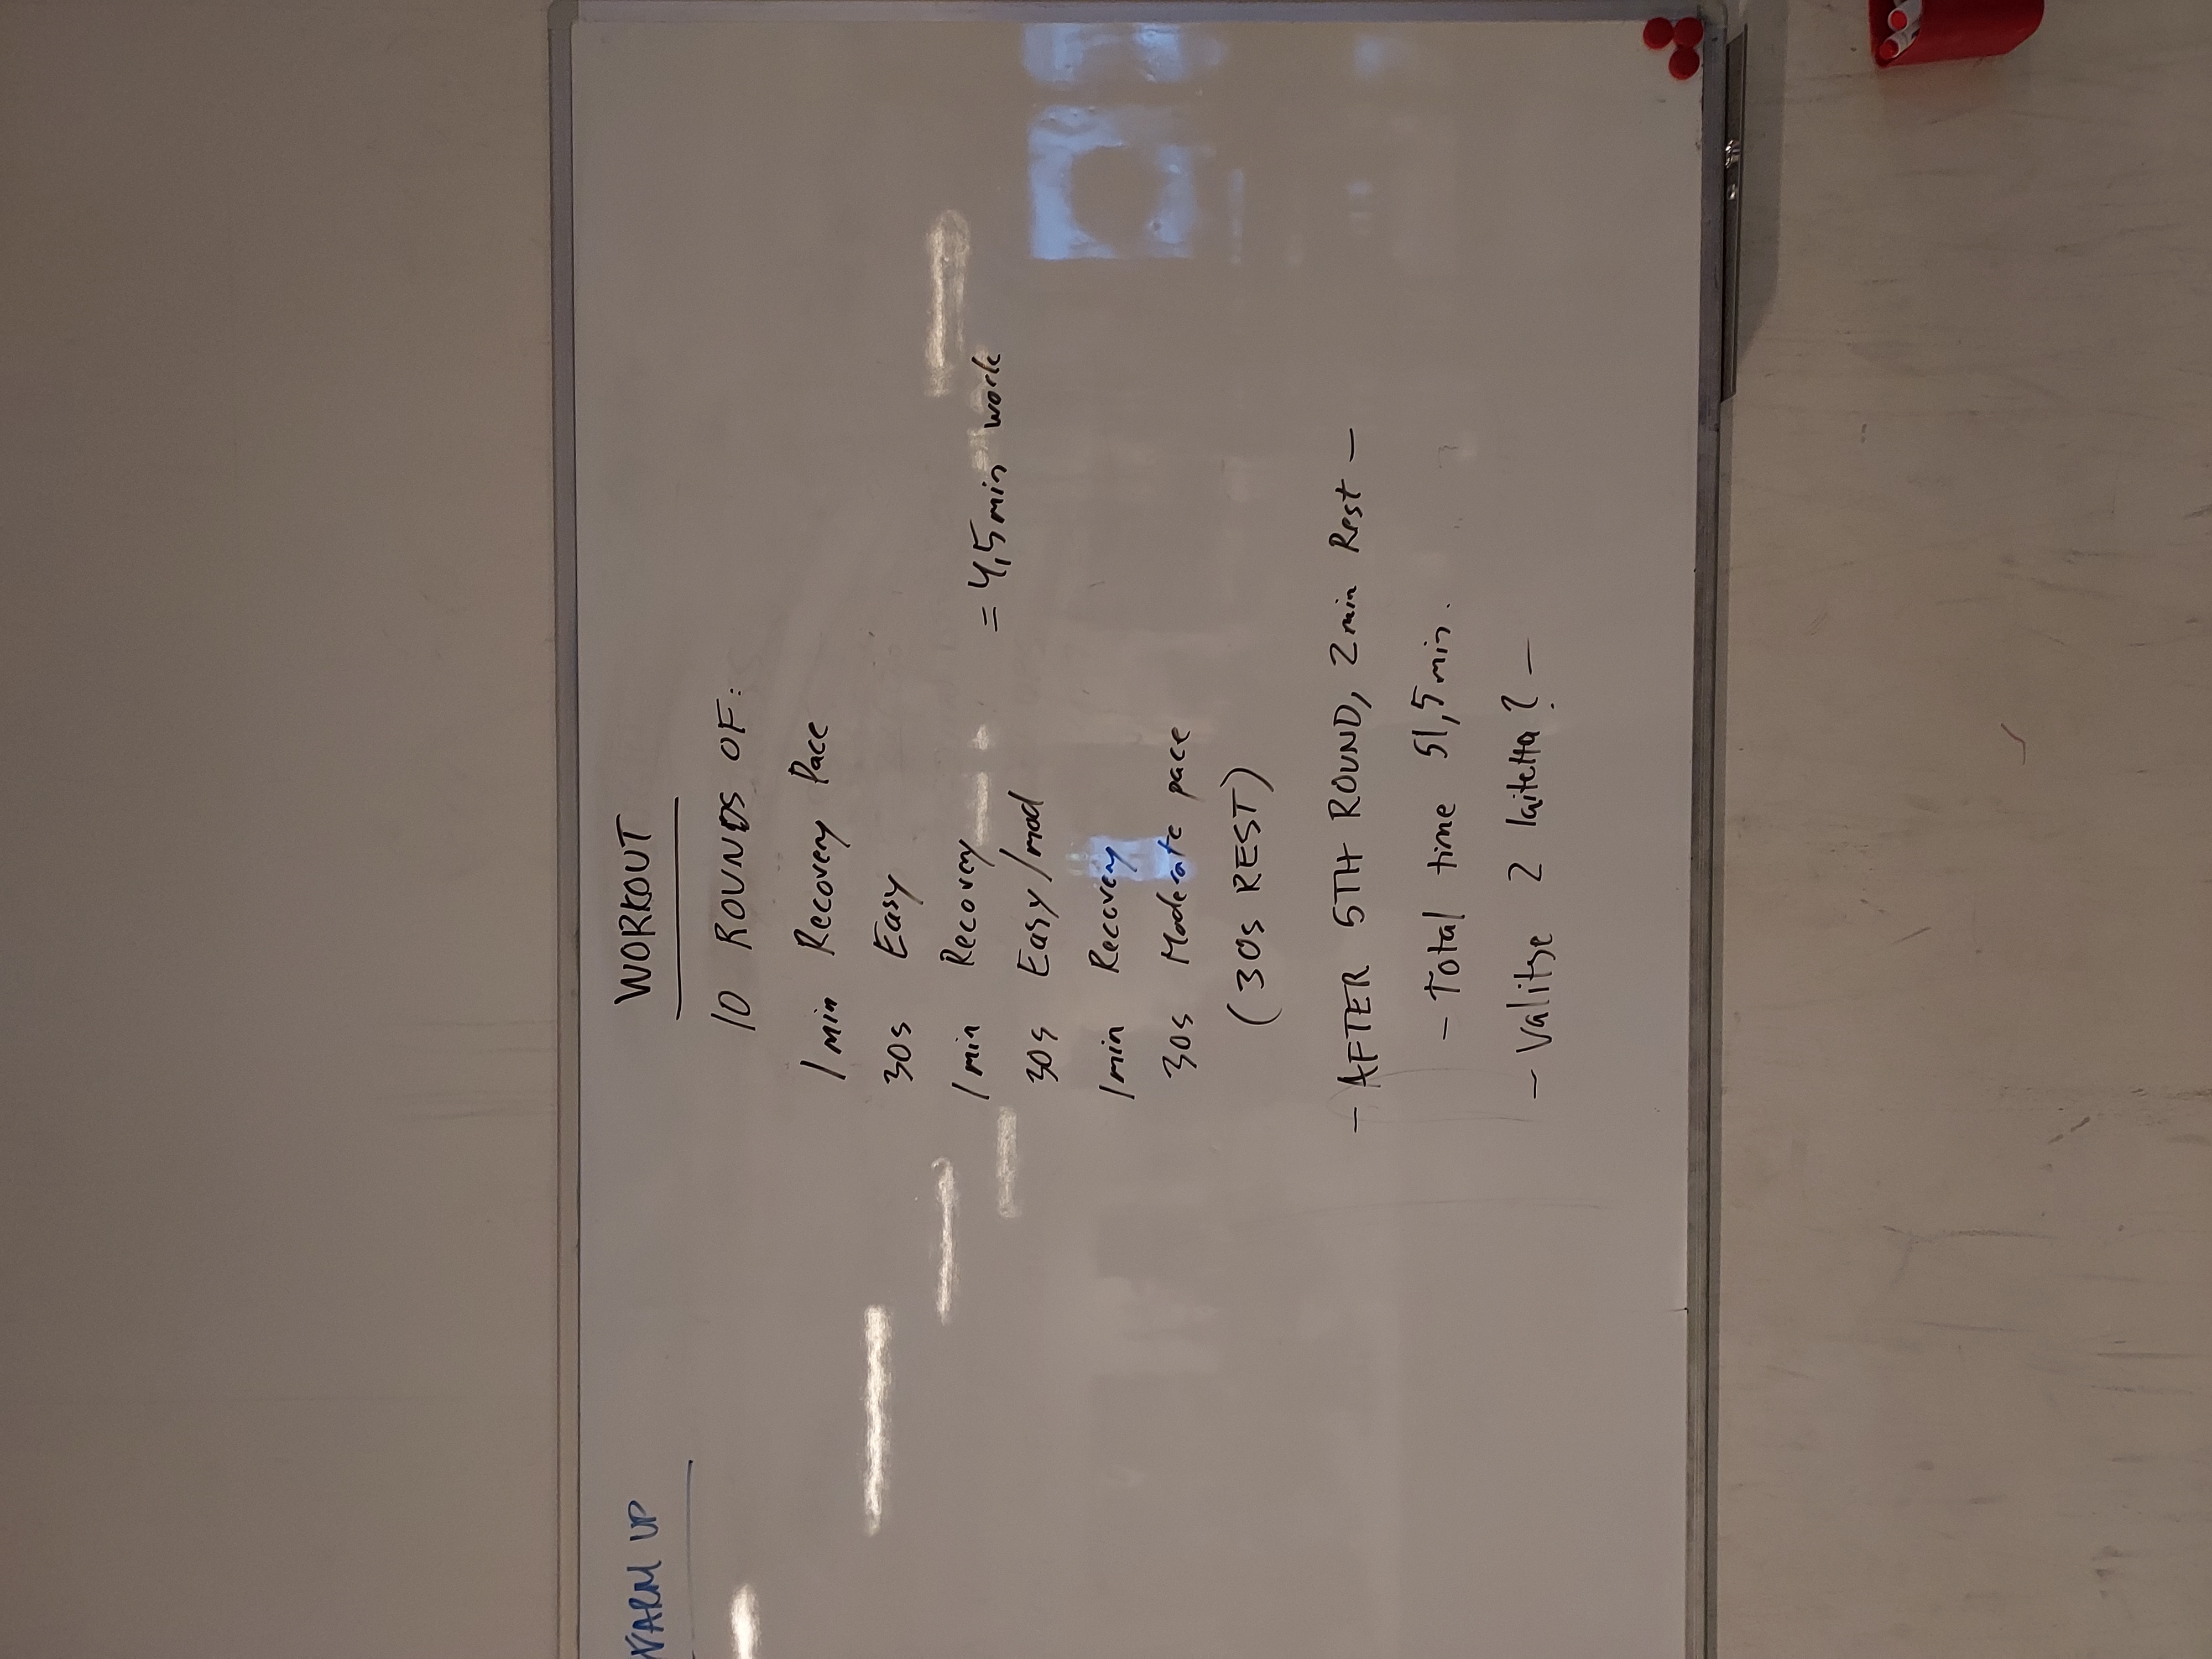 WARM UP
WORKOUT
10 ROUNDS OF:
1 min Recovery Pace
30s Easy
1 min Recovery
= 4,5 min work
30s Easy/mod
1 min Recovery
30s Moderate pace
(30s REST)
- AFTER 5TH ROUND, 2 min Rest -
- Total time 51,5 min.
- Valitse 2 laitetta? -